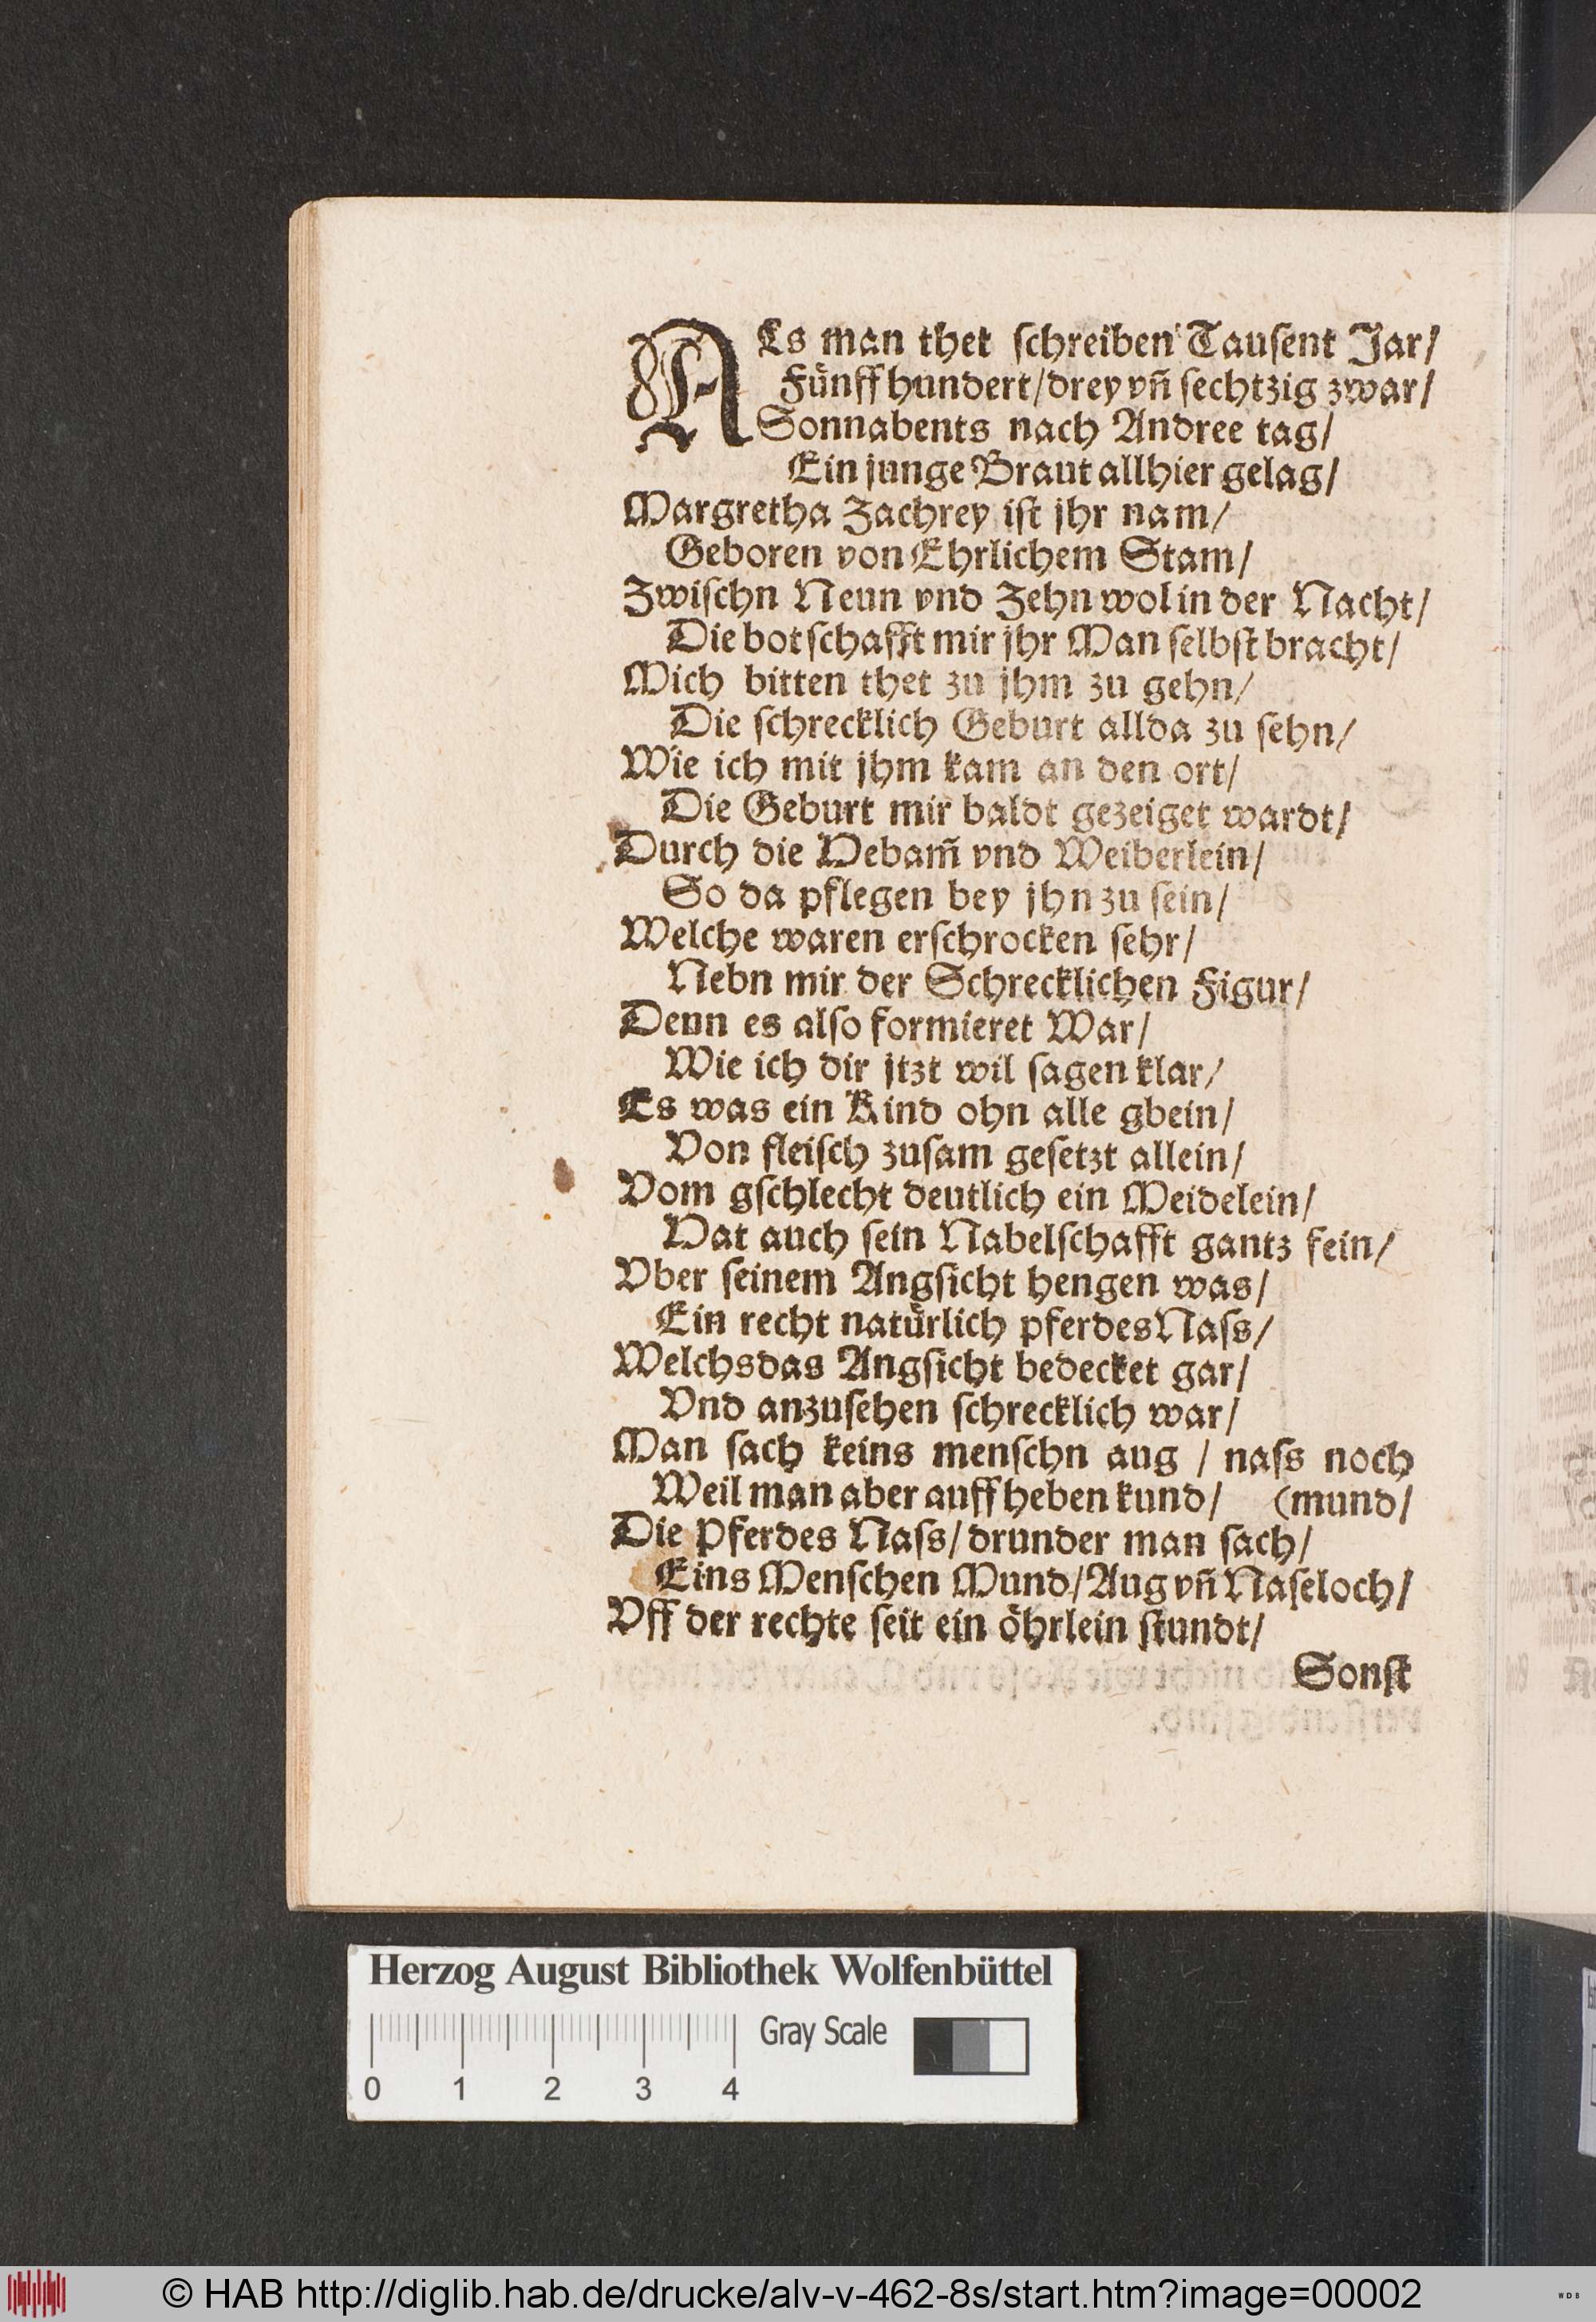 ALs man thet ſchreiben Tauſent Jar/
Fünff hundert/drey vn̄ ſechtzig zwar/
Sonnabents nach Andree tag/
Ein junge Braut allhier gelag/
Margretha Zachrey iſt jhr nam/
Geboren von Ehrlichem Stam/
Zwiſchn Neun vnd Zehn wol in der Nacht/
Die botſchafft mir jhr Man ſelbſt bracht/
Mich bitten thet zu jhm zu gehn/
Die ſchrecklich Geburt allda zu ſehn/
Wie ich mit jhm kam an den ort/
Die Geburt mir baldt gezeiget wardt/
Durch die Hebam̄ vnd Weiberlein/
So da pflegen bey jhn zu ſein/
Welche waren erſchrocken ſehr/
Nebn mir der Schrecklichen Figur/
Denn es alſo formieret War/
Wie ich dir jtzt wil ſagen klar/
Es was ein Kind ohn alle gbein/
Von fleiſch zuſam geſetzt allein/
Vom gſchlecht deutlich ein Meidelein/
Hat auch ſein Nabelſchafft gantz fein/
Vber ſeinem Angſicht hengen was/
Ein recht natürlich pferdes Naſs/
Welchs das Angſicht bedecket gar/
Vnd anzuſehen ſchrecklich war/
Man ſach keins menſchn aug / naſs noch
Weil man aber auffheben kund/ (mund/
Die Pferdes Naſs/drunder man ſach/
Eins Menſchen Mund/Aug vn̄ Naſeloch/
Vff der rechte ſeit ein öhrlein ſtundt/
Sonſt
Herzog August Bibliothek Wolfenbüttel
Gray Scale
0 1 2 3 4
© HAB http://diglib.hab.de/drucke/alv-v-462-8s/start.htm?image=00002
WDB